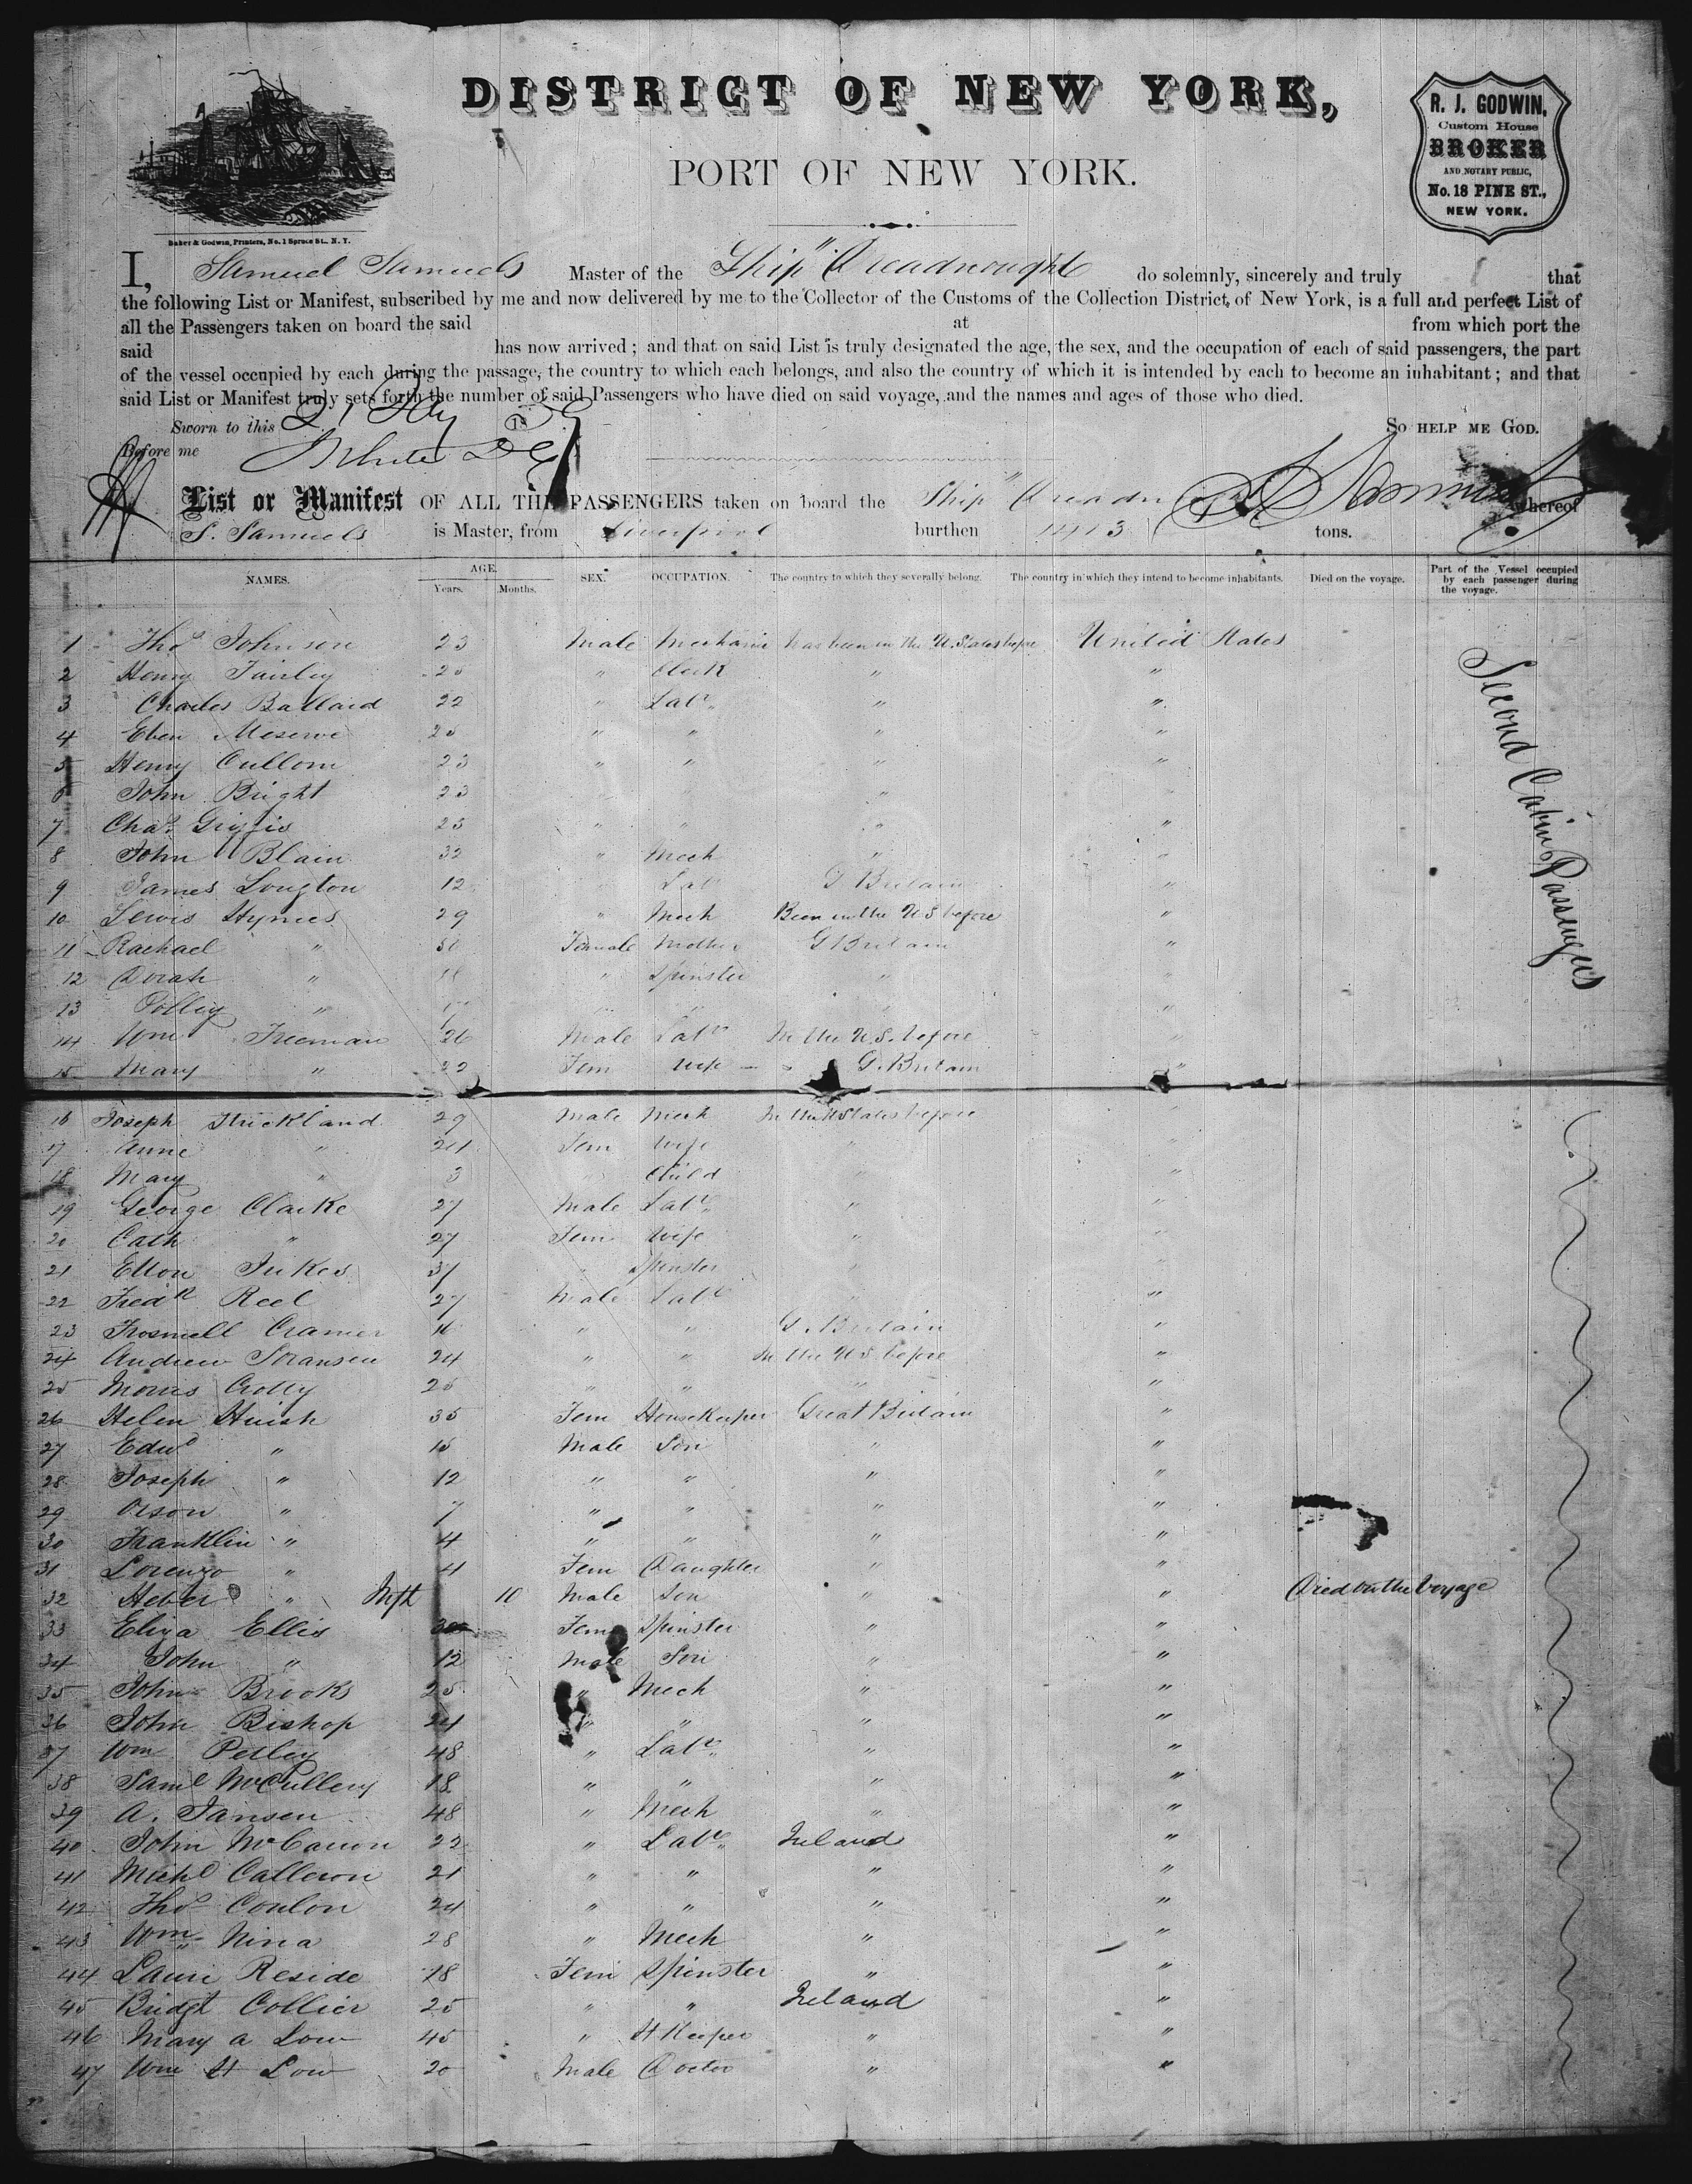 DISTRICT OF NEW YORK,
PORT OF NEW YORK.
R. J. GODWIN,
Custom House
BROKER
AND NOTARY PUBLIC,
No. 18 PINE ST.,
NEW YORK.
Baker & Godwin, Printers, No. 1 Spruce St., N. Y.
I, Samuel Samuels Master of the Ship "Dreadnought do solemnly, sincerely and truly that
the following List or Manifest, subscribed by me and now delivered by me to the Collector of the Customs of the Collection District of New York, is a full and perfect List of
all the Passengers taken on board the said at from which port the
said has now arrived; and that on said List is truly designated the age, the sex, and the occupation of each of said passengers, the part
of the vessel occupied by each during the passage, the country to which each belongs, and also the country of which it is intended by each to become an inhabitant; and that
said List or Manifest truly sets forth the number of said Passengers who have died on said voyage, and the names and ages of those who died.
Sworn to this 21 18 So help me God.
Before me
List or Manifest OF ALL THE PASSENGERS taken on board the Ship " whereof
S. Samuels is Master, from Liverpool burthen 1413 tons.
NAMES. AGE. Years. Months. SEX. OCCUPATION. The country to which they severally belong. The country in which they intend to become inhabitants. Died on the voyage. Part of the Vessel occupied by each passenger during the voyage.
1 Thos Johnson 23 Male Mechanic has been in the U. States before United States
2 Henry Fairley 25 " Clerk " "
3 Charles Ballard 22 " Labr " "
4 Eben Meserve 25 " " " "
5 Henry Cullom 23 " " " "
6 John Bright 23 " "
7 Chas 25 " " " "
8 John Blain 32 " Mech " "
9 James Longton 12 Labr G Britain "
10 Lewis Hymes 29 " Mech Been in the U S before "
11 Rachael " 50 Female Mother G Britain "
12 Dorah " 18 " Spinster " "
13 Polley " " " "
14 Wm Freeman 26 Male Labr In the U.S. before "
15 Mary " 22 Fem Wife G. Britain "
16 Joseph Strickland 29 Male Mech In the U States before "
17 Anne " 24 Fem Wife " "
18 Mary " 3 Child " "
19 George Clarke 27 Male Labr " "
20 Cath " 27 Fem Wife " "
21 Ellon Jukes 37 " Spinster " "
22 Fredk Reel 27 Male Labr "
23 Cramer 16 " " G. Britain "
24 Andrew Soransen 24 " " In the U S before "
25 Morris Crotty 25 " " " "
26 Helen Huish 35 Fem HouseKeeper Great Britain "
27 Edwd " 15 Male Son " "
28 Joseph " 12 " " " "
29 Orson " 7 " " " "
30 Franklin " 4 " " " "
31 Lorenzo " 4 Fem Daughter " "
32 Heber " 10 Male Son " " Died on the Voyage
33 Eliza Ellis 30 Fem Spinster " "
34 John " 12 Male Son " "
35 John Brooks 25 " Mech " "
36 John Bishop 24 " " " "
37 Wm Petley 48 " Labr " "
38 Saml McCullery 18 " " " "
39 A. Jansen 48 " Mech " "
40 John McCanon 22 " Labr Ireland "
41 Michl Calleron 21 " " " "
42 Thos Conlon 24 " " " "
43 Wm Nina 28 " Mech " "
44 Laura Reside 18 Fem Spinster " "
45 Bridgt Collier 25 " " Ireland "
46 Mary A Low 45 " H Keeper " "
47 Wm H Low 20 Male Doctor " "
Second Cabin Passengers